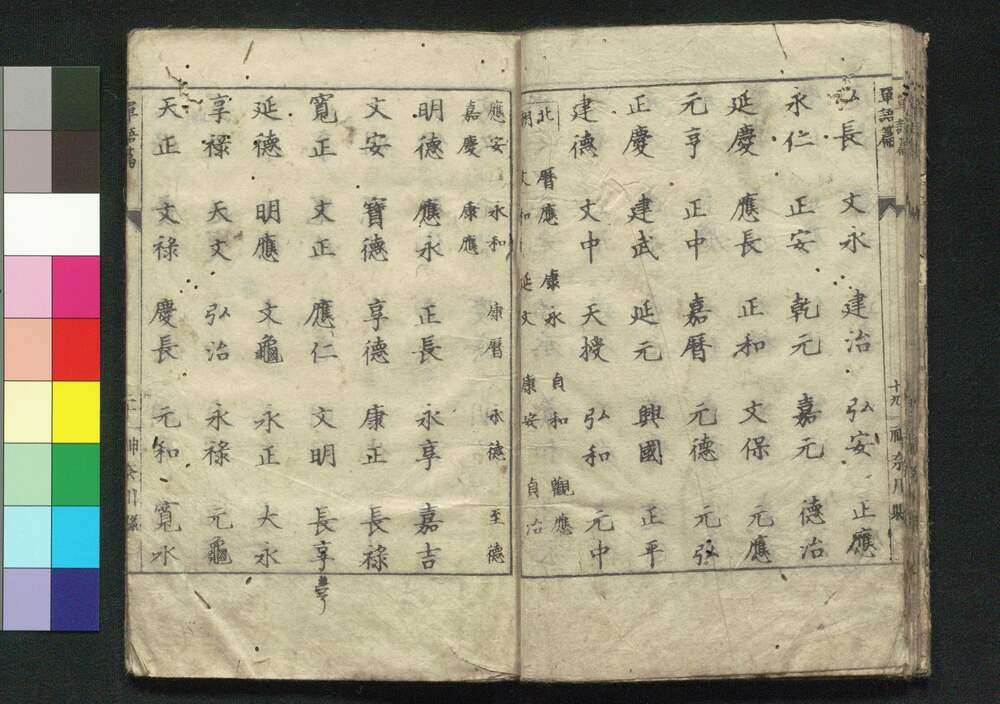 單語篇
弘長 文永 建治 弘安 正應
永仁 正安 乾元 嘉元 德治
延慶 應長 正和 文保 元應
元亨 正中 嘉曆 元德 元弘
正慶 建武 延元 興國 正平
建德 文中 天授 弘和 元中
北朝 曆應 康永 貞和 觀應
文和 延文 康安 貞治
應安 永和 康曆 永德 至德
嘉慶 康應
明德 應永 正長 永享 嘉吉
文安 寶德 享德 康正 長祿
寬正 文正 應仁 文明 長享
享
延德 明應 文龜 永正 大永
享祿 天文 弘治 永祿 元龜
天正 文祿 慶長 元和 寬永
單語篇